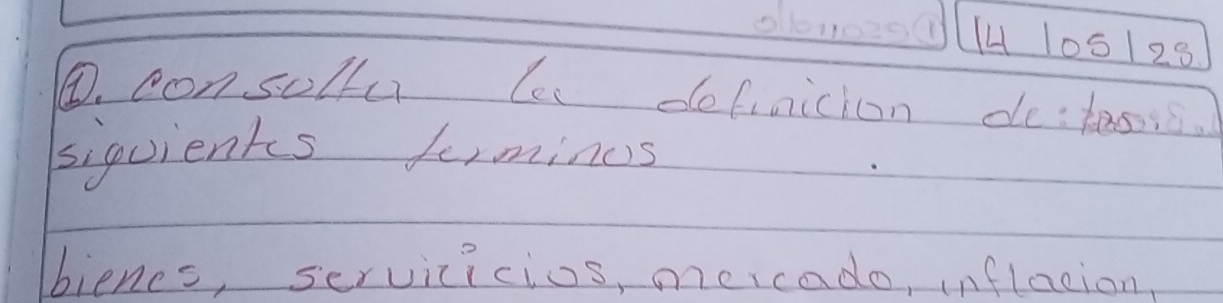 14 | 05 | 25
①. consulta la definicion de: los
siguientes terminos
bienes, serviicios, mercado, inflacion,